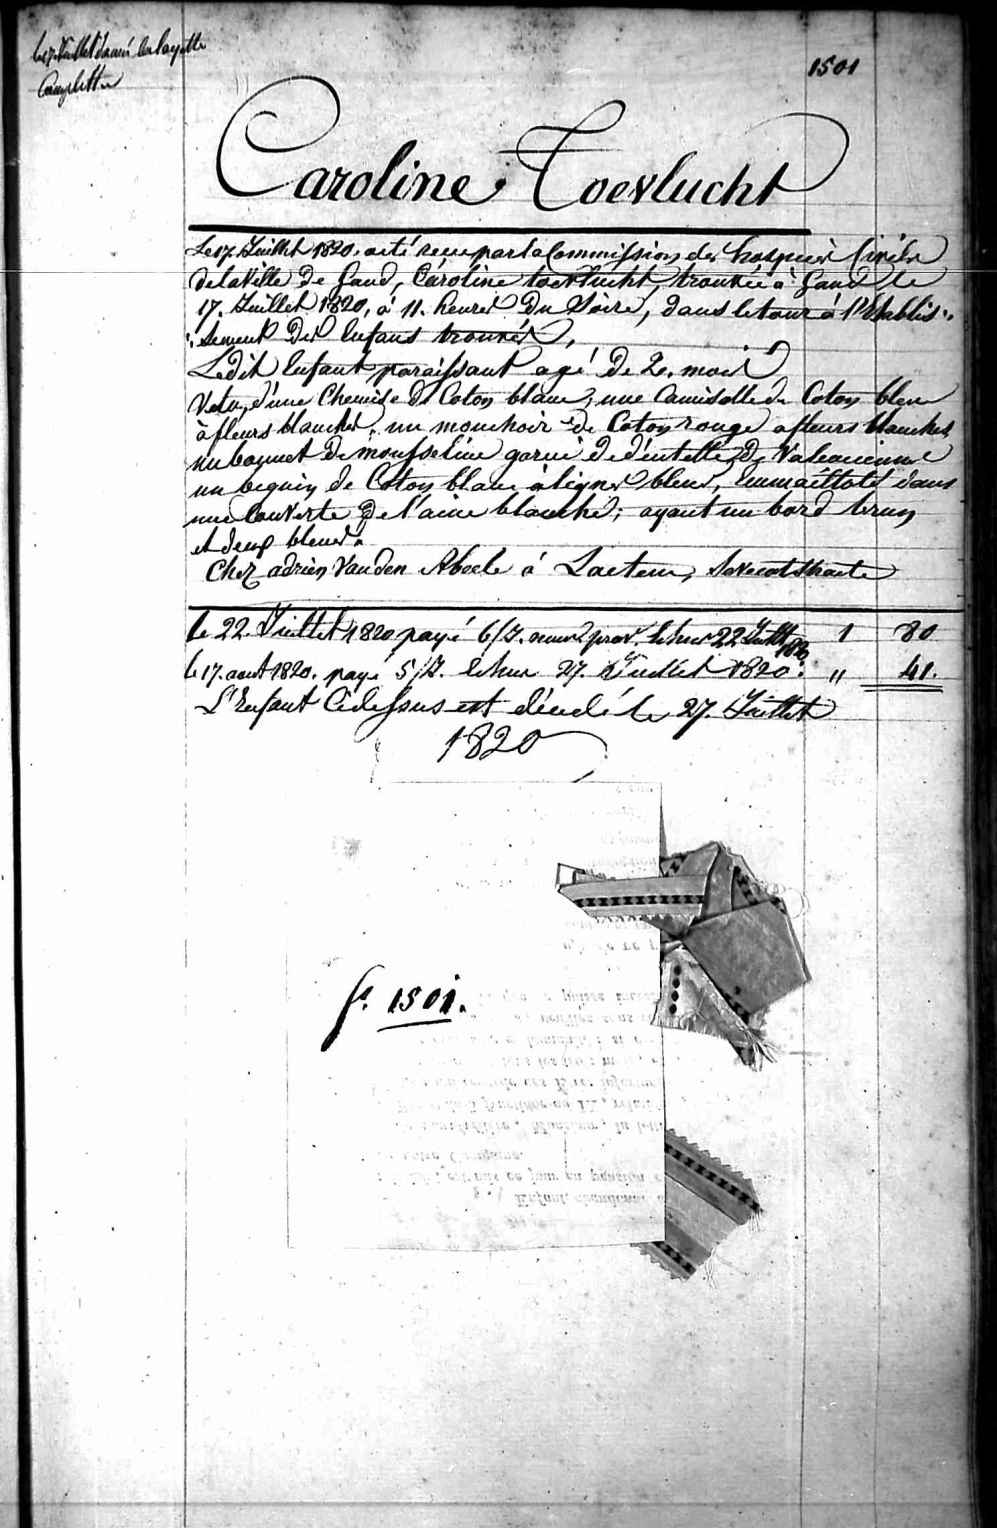 le 17 Juillet donné la layette
Complette
1501
Caroline Toevlucht
Le 17. Juillet 1820, a eté recu par la Commission des hospices Civils
de la Ville de Gand, Caroline toevlucht, trouvée à Gand le
17. Juillet 1820, à 11. heures Du Soire, dans le tour à l'Etablis=
=sement Des Enfans trouvés,
Ledit Enfant paraissant agé De 2. mois
Vetu, d'une Chemise De Coton blanc, une Camisolle de Coton bleu
à fleurs blanches, un mouchoir De Coton rouge a fleurs blanches
un bonnet De mousseline garni De dentelle De Valencienne
un beguin de Coton blanc à lignes bleus, Emmaillotté dans
une Couverte De laine blanche; ayant un bord brun
et deux bleus.
Chez adrien Van den Abeele à Laetem,
le 22. Juillet 1820 payé 6/7. echu 22 Juillt 1820 1 80
le 17. aout 1820. payé 5/7. echu 27. Juillet 1820. " 41.
L'Enfant Cidessus est décedé le 27. Juillet
1820
f.° 1501.